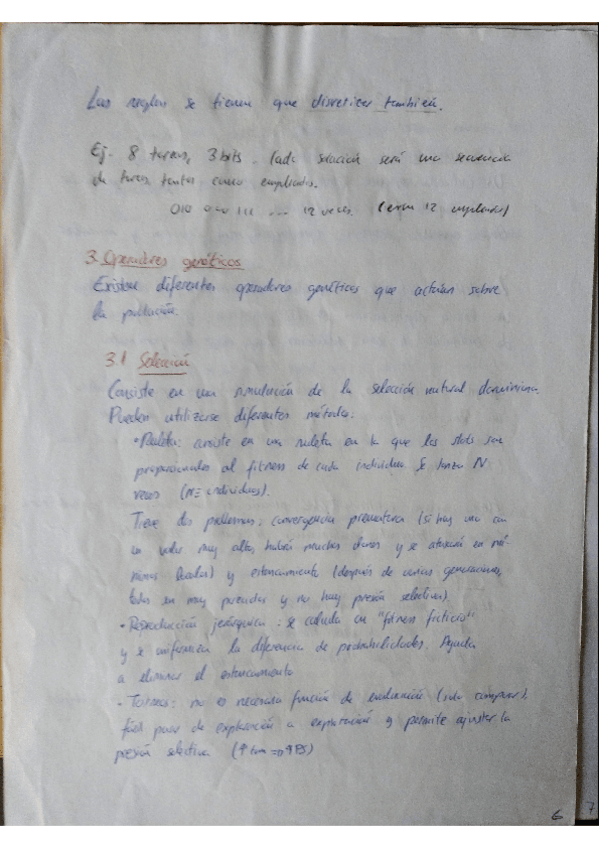 Las reglas se tienen que discretizar también.
Ej. 8 tareas, 3 bits. Cada solución será una secuencia
de tareas, tantas como empleados.
010 000 111 ... 12 veces. (eran 12 empleados)
3. Operadores genéticos
Existen diferentes operadores genéticos que actúan sobre
la población.
3.1 Selección
Consiste en una simulación de la selección natural darwiniana.
Pueden utilizarse diferentes métodos:
• Ruleta: consiste en una ruleta en la que los slots son
proporcionales al fitness de cada individuo. Se lanza N
veces (N≡individuos).
Tiene dos problemas: convergencia prematura (si hay uno con
un valor muy alto, habrá muchos clones y se atascará en mí-
nimos locales) y estancamiento (después de varias generaciones,
todos son muy parecidos y no hay presión selectiva).
• Reproducción jerárquica: se calcula un "fitness ficticio"
y se uniformiza la diferencia de probabilidades. Ayuda
a eliminar el estancamiento
• Torneos: no es necesaria función de evaluación (solo comparar),
fácil pasar de exploración a explotación y permite ajustar la
presión selectiva (↑tam ⇒ ↑PS)
6
7